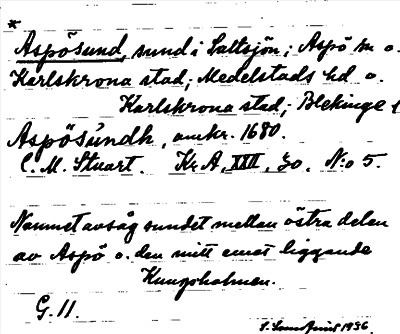 *
Aspösund, sund i Saltsjön; Aspö sn o.
Karlskrona stad; Medelstads hd o.
Karlskrona stad; Blekinge l
Aspösúndh, omkr. 1680.
C. M. Stuart. Kr. A, XXII, 30, N:o 5.
Namnet avsåg sundet mellan östra delen
av Aspö o. den mitt emot liggande
Kungsholmen.
G. 11.
1936